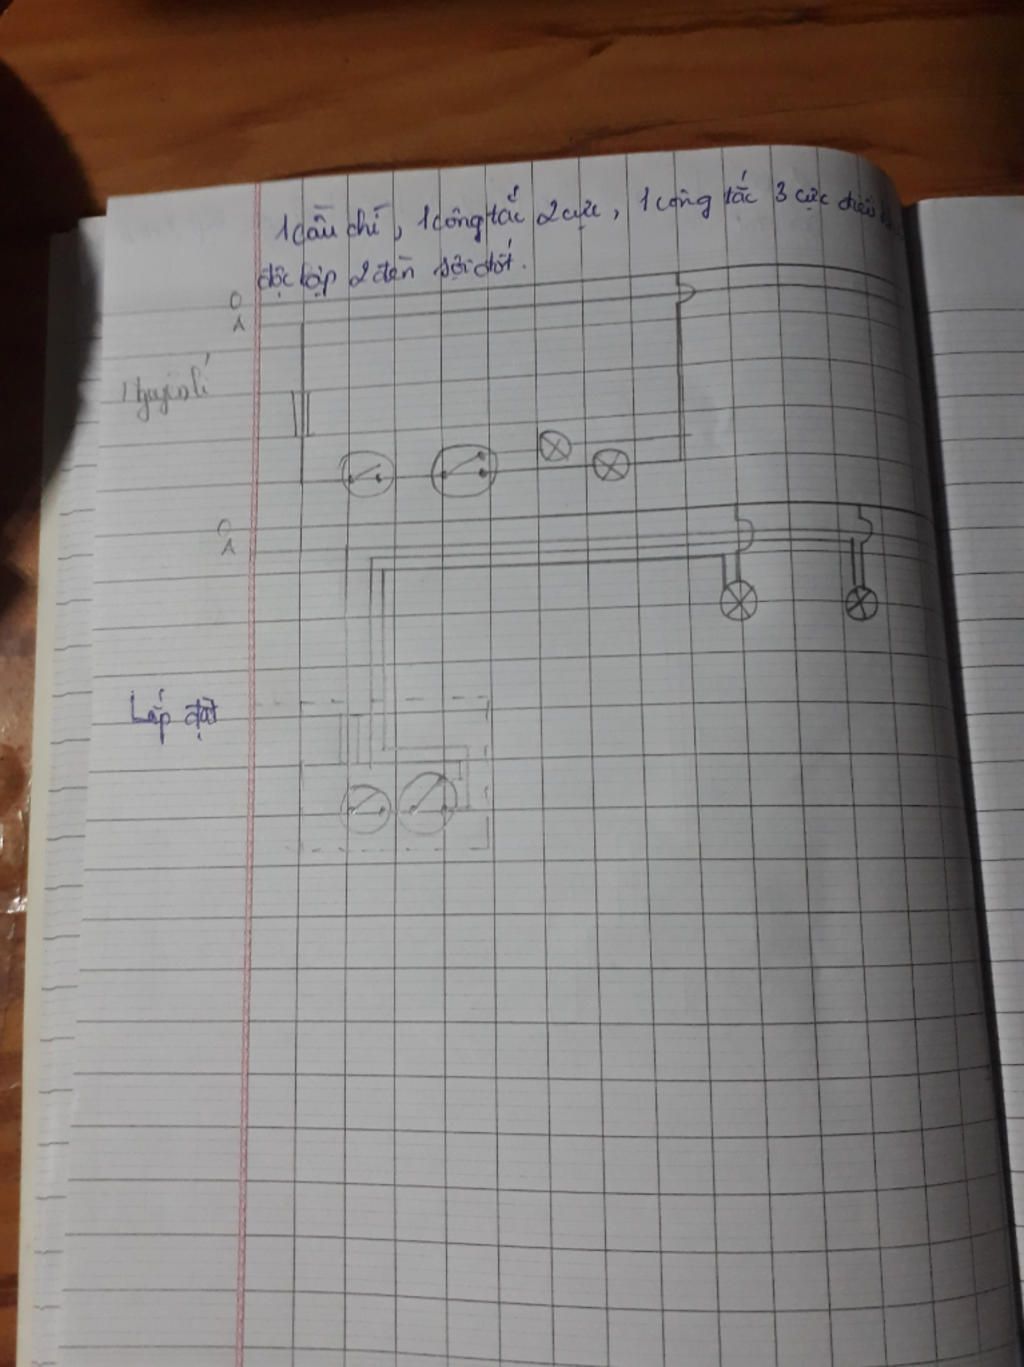 1 cầu chì, 1 công tắc 2 cực, 1 công tắc 3 cực điều
độc lập 2 đèn sợi đốt.
O
A
Nguyên lí
O
A
Lắp đặt